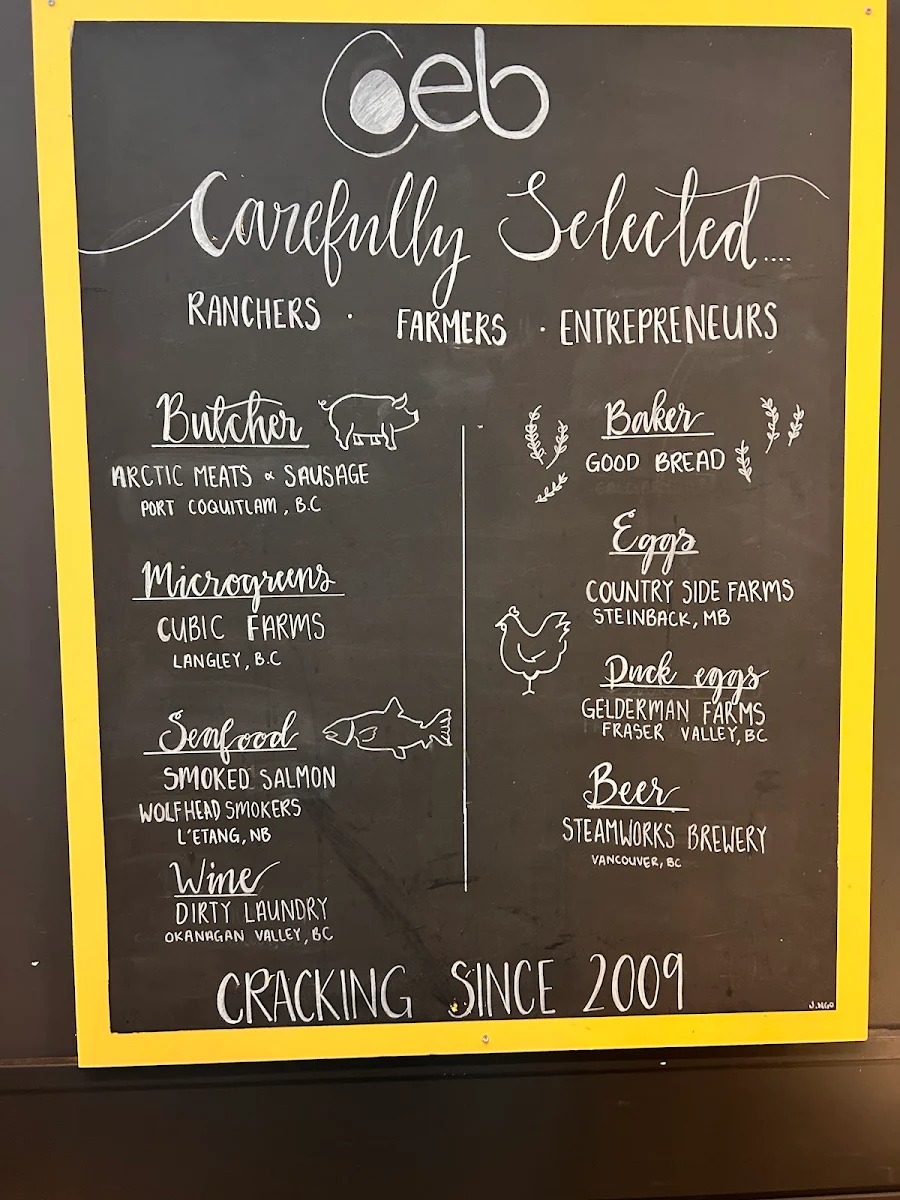 eb
Carefully Selected....
RANCHERS · FARMERS · ENTREPRENEURS
Butcher
ARCTIC MEATS & SAUSAGE
PORT COQUITLAM, B.C
Microgreens
CUBIC FARMS
LANGLEY, B.C
Seafood
SMOKED SALMON
WOLFHEAD SMOKERS
L'ETANG, NB
Wine
DIRTY LAUNDRY
OKANAGAN VALLEY, BC
Baker
GOOD BREAD
Eggs
COUNTRY SIDE FARMS
STEINBACK, MB
Duck eggs
GELDERMAN FARMS
FRASER VALLEY, BC
Beer
STEAMWORKS BREWERY
VANCOUVER, BC
CRACKING SINCE 2009
J.NGO